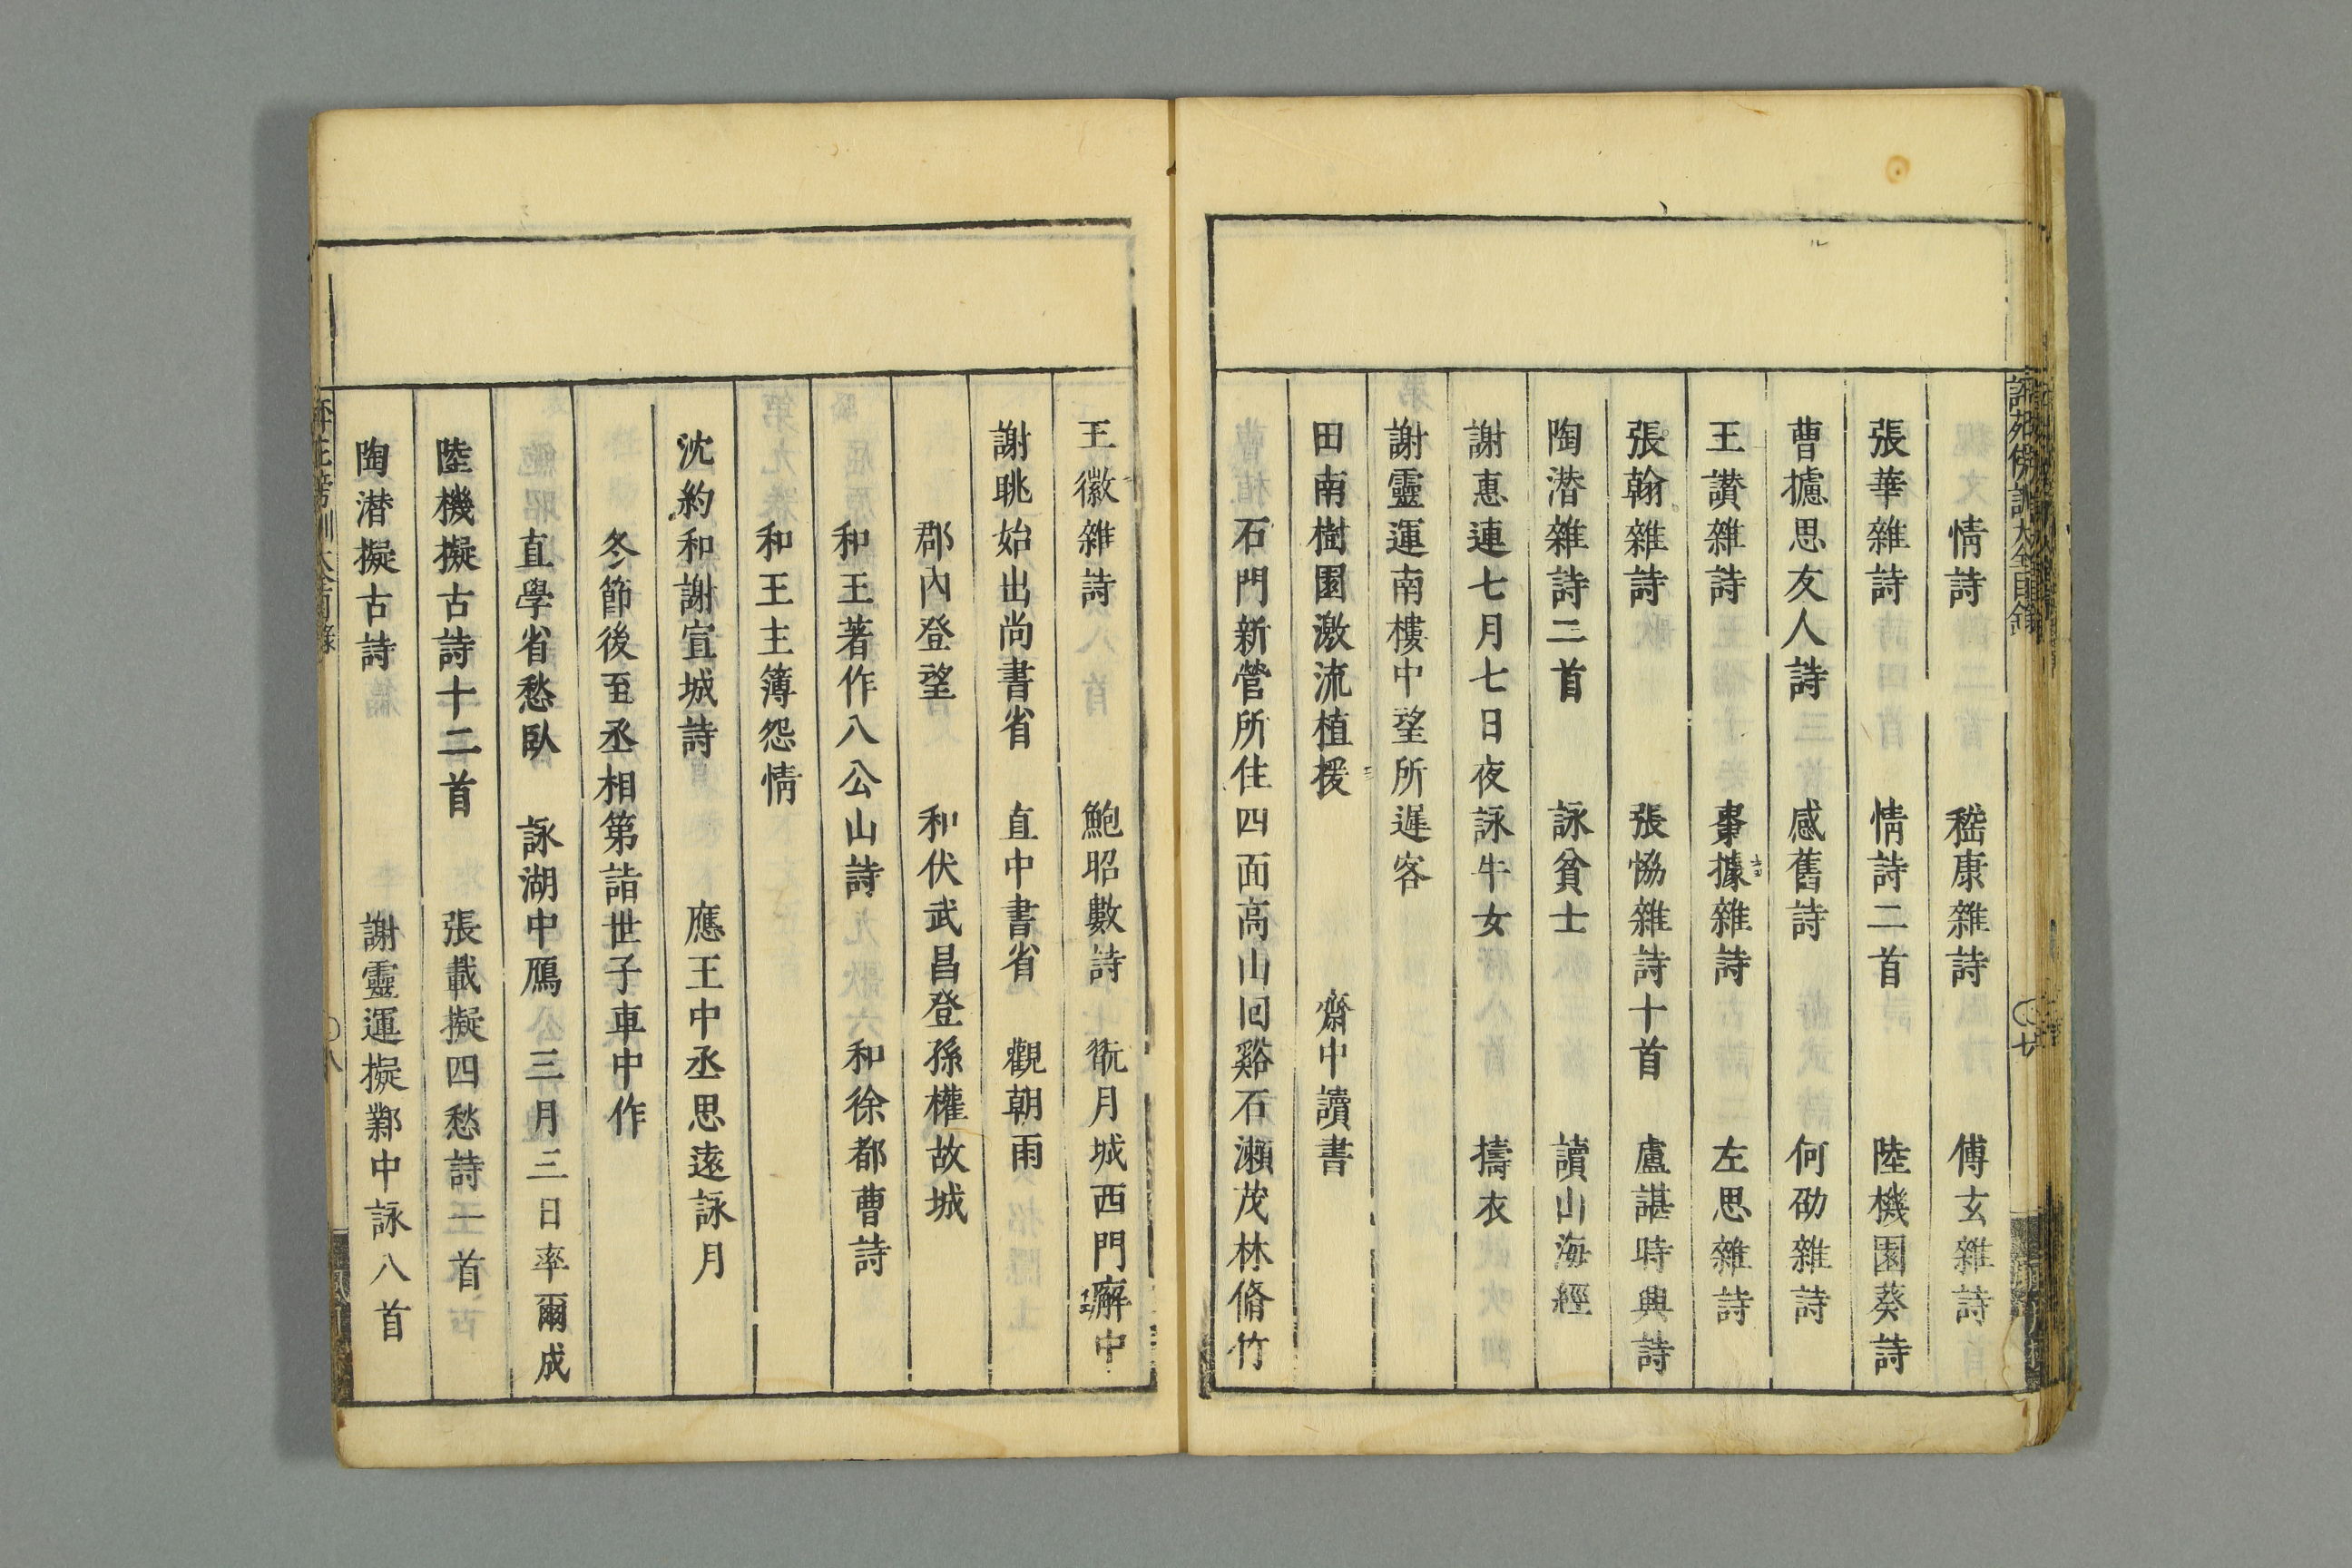 情詩　嵇康雜詩　傅玄雜詩
張華雜詩　情詩二首　陸機園葵詩
曹攄思友人詩　感舊詩　何劭雜詩
王讃雜詩　棗據雜詩　左思雜詩
張翰雜詩　張恊雜詩十首　盧諶時興詩
陶潜雜詩二首　詠貧士　讀山海經
謝惠連七月七日夜詠牛女　擣衣
謝靈運南樓中望所遲客
田南樹園激流植援　齋中讀書
石門新營所住四面高山回谿石瀨茂林脩竹
王徽雜詩　鮑昭數詩　翫月城西門廨中
謝眺始出尚書省　直中書省　觀朝雨
郡內登望　和伏武昌登孫權故城
和王著作八公山詩　和徐都曹詩
和王主簿怨情
沈約和謝宣城詩　應王中丞思遠詠月
冬節後至丞相第詣世子車中作
直學省愁臥　詠湖中鴈　三月三日率爾成
陸機擬古詩十二首　張載擬四愁詩一首
陶潜擬古詩　謝靈運擬鄴中詠八首